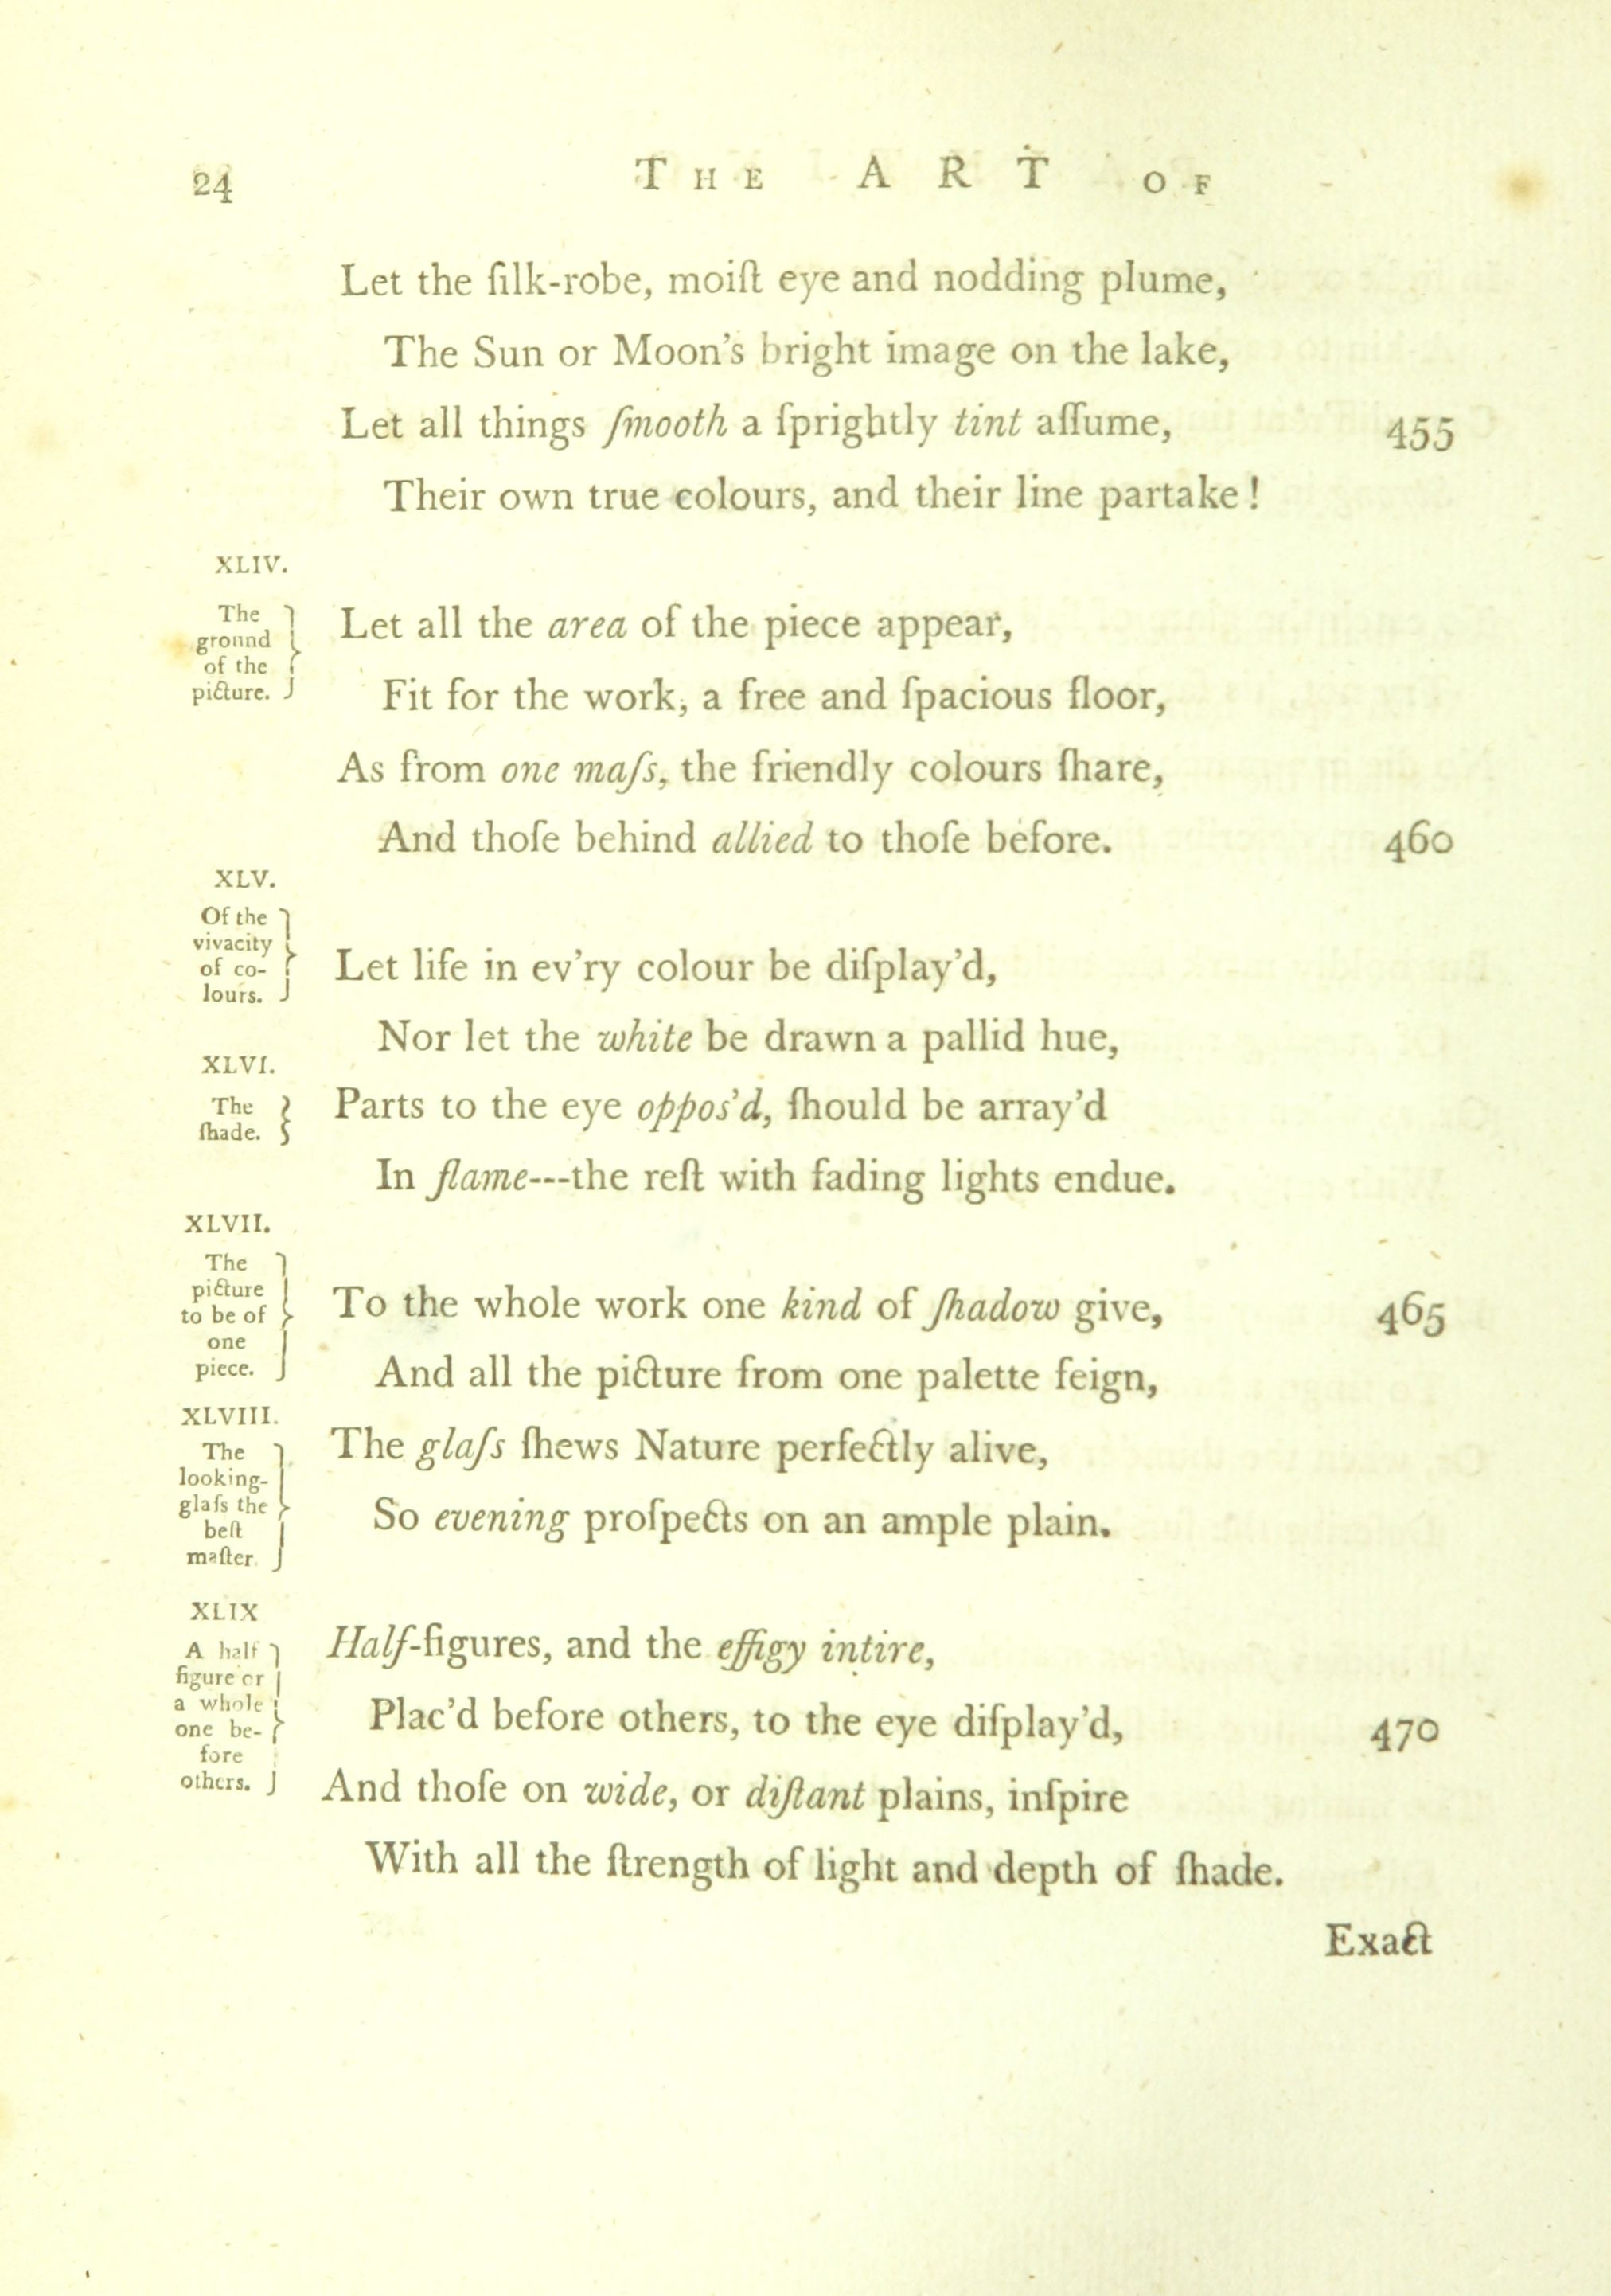 24
THE ART OF
Let the ſilk-robe, moiſt eye and nodding plume,
The Sun or Moon's bright image on the lake,
Let all things ſmooth a ſprightly tint aſſume,
455
Their own true colours, and their line partake!
XLIV.
The
ground
of the
picture.
Let all the area of the piece appear,
Fit for the work, a free and ſpacious floor,
As from one maſs, the friendly colours ſhare,
And thoſe behind allied to thoſe before.
460
XLV.
Of the
vivacity
of co-
lours.
Let life in ev'ry colour be diſplay'd,
Nor let the white be drawn a pallid hue,
XLVI.
The
ſhade.
Parts to the eye oppos'd, ſhould be array'd
In flame---the reſt with fading lights endue.
XLVII.
The
picture
to be of
one
piece.
To the whole work one kind of ſhadow give,
465
And all the picture from one palette feign,
XLVIII.
The
looking-
glaſs the
beſt
maſter.
The glaſs ſhews Nature perfectly alive,
So evening proſpects on an ample plain.
XLIX
A half
figure or
a whole
one be-
fore
others.
Half-figures, and the effigy intire,
Plac'd before others, to the eye diſplay'd,
470
And thoſe on wide, or diſtant plains, inſpire
With all the ſtrength of light and depth of ſhade.
Exact